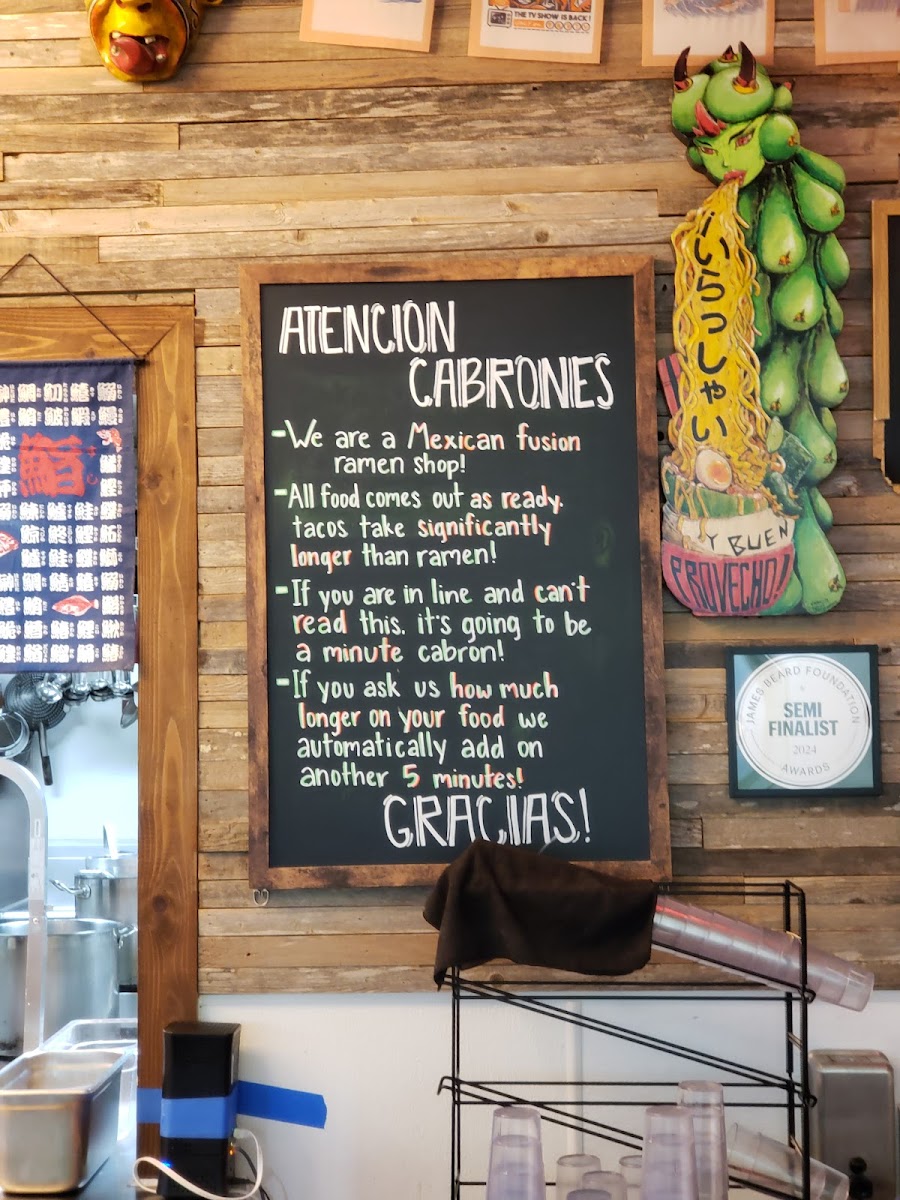 THE TV SHOW IS BACK!
ATENCION
CABRONES
-We are a Mexican fusion
ramen shop!
-All food comes out as ready.
tacos take significantly
longer than ramen!
-If you are in line and can't
read this. it's going to be
a minute cabron!
-If you ask us how much
longer on your food we
automatically add on
another 5 minutes!
GRACIAS!
いらっしゃい
Y BUEN
PROVECHO!
JAMES BEARD FOUNDATION
SEMI
FINALIST
2024
AWARDS
鮨